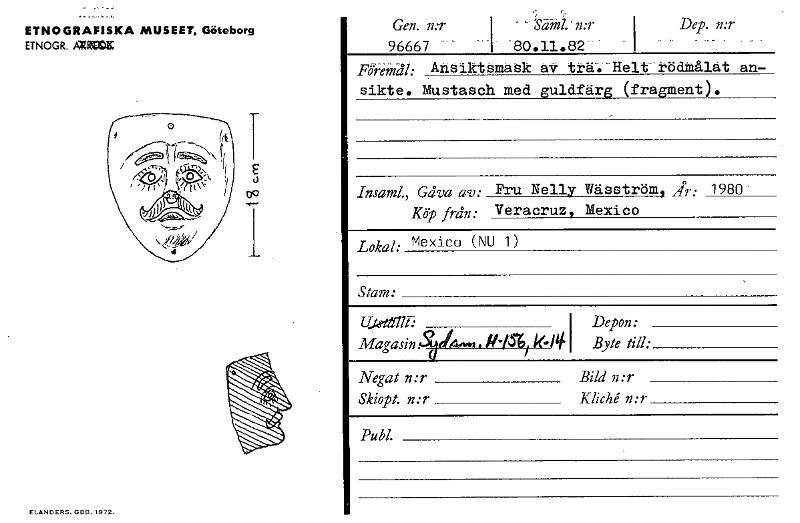 ETNOGRAFISKA MUSEET, Göteborg
ETNOGR.
18 cm
ELANDERS. GBG. 1972.
Gen. n:r Saml. n:r Dep. n:r
96667 80.11.82
Föremål: Ansiktsmask av trä. Helt rödmålat an-
sikte. Mustasch med guldfärg (fragment).
Insaml., Gåva av: Fru Nelly Wäsström, År: 1980
Köp från: Veracruz, Mexico
Lokal: Mexico (NU 1)
Stam:
Utställt: Depon:
Magasin: Sydam. H-156, K-14 Byte till:
Negat n:r Bild n:r
Skiopt. n:r Kliché n:r
Publ.